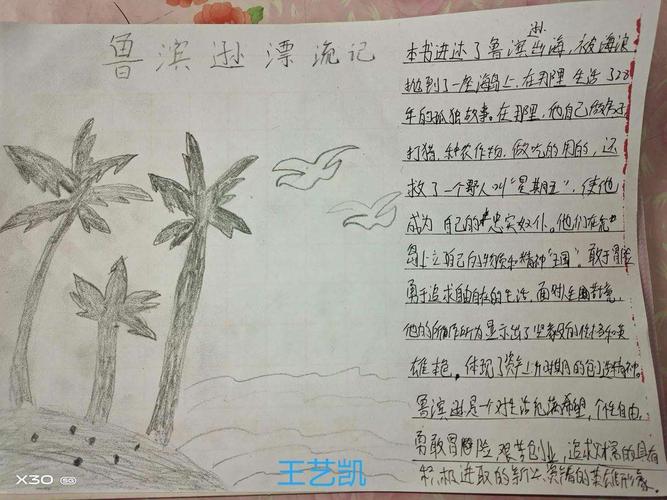 鲁滨逊漂流记
本书讲述了鲁滨逊出海,被海浪
抛到了一座海岛上,在那里生活了28
年的孤独故事。在那里,他自己做房子
打猎,种农作物,做吃的用的,还
救了一个野人叫"星期五",使他
成为自己的忠实奴仆。他们在荒
岛上立自己的物质和精神"王国"。敢于冒险
勇于追求自由自在的生活,面对困境,
他的所作所为显示出了坚毅的性格和英
雄本色,体现了资产上升时期的创造精神。
鲁滨逊是一个对生活充满希望,个性自由,
勇敢冒险,艰苦创业,追求财富的具有
积极进取的新兴资产的英雄形象。
X30 5G
王艺凯